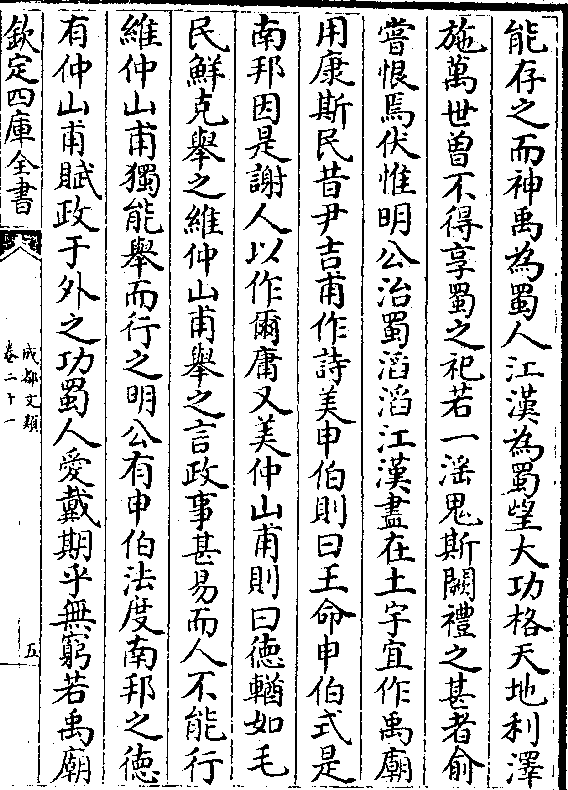 能存之而神禹為蜀人江漢為蜀望大功格天地利澤
施萬世曾不得享蜀之祀若一滛鬼斯闕禮之甚者俞
嘗恨焉伏惟明公治蜀滔滔江漢盡在土宇宜作禹廟
用康斯民昔尹吉甫作詩美申伯則曰王命申伯式是
南邦因是謝人以作爾庸又美仲山甫則曰德輶如毛
民鮮克舉之維仲山甫舉之言政事甚易而人不能行
維仲山甫獨能舉而行之明公有申伯法度南邦之徳
有仲山甫賦政于外之功蜀人愛戴期乎無窮若禹廟
欽定四庫全書
成都文類
卷二十一
五